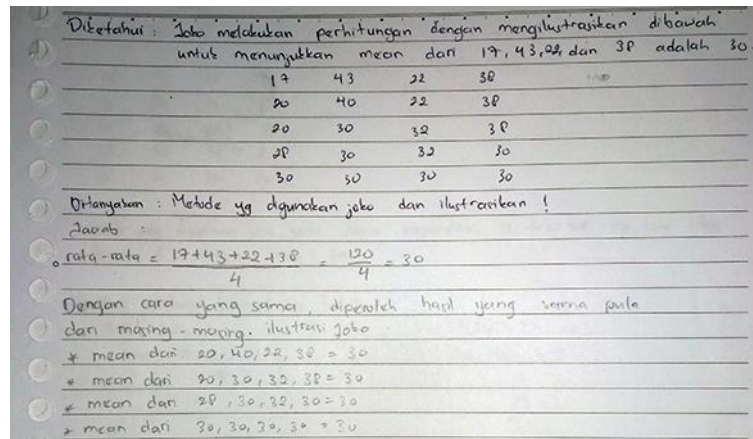 Diketahui : Joko melakukan perhitungan dengan mengilustrasikan dibawah
untuk menunjukkan mean dari 17, 43, 22, dan 38 adalah 30
17 43 22 38
20 40 22 38
20 30 32 38
28 30 32 30
30 30 30 30
Ditanyakan : Metode yg digunakan joko dan ilustrasikan !
Jawab :
rata-rata = 17+43+22+38 / 4 = 120 / 4 = 30
Dengan cara yang sama, diperoleh hasil yang sama pula
dari masing-masing ilustrasi Joko
* mean dari 20, 40, 22, 38 = 30
* mean dari 20, 30, 32, 38 = 30
* mean dari 28, 30, 32, 30 = 30
* mean dari 30, 30, 30, 30 = 30